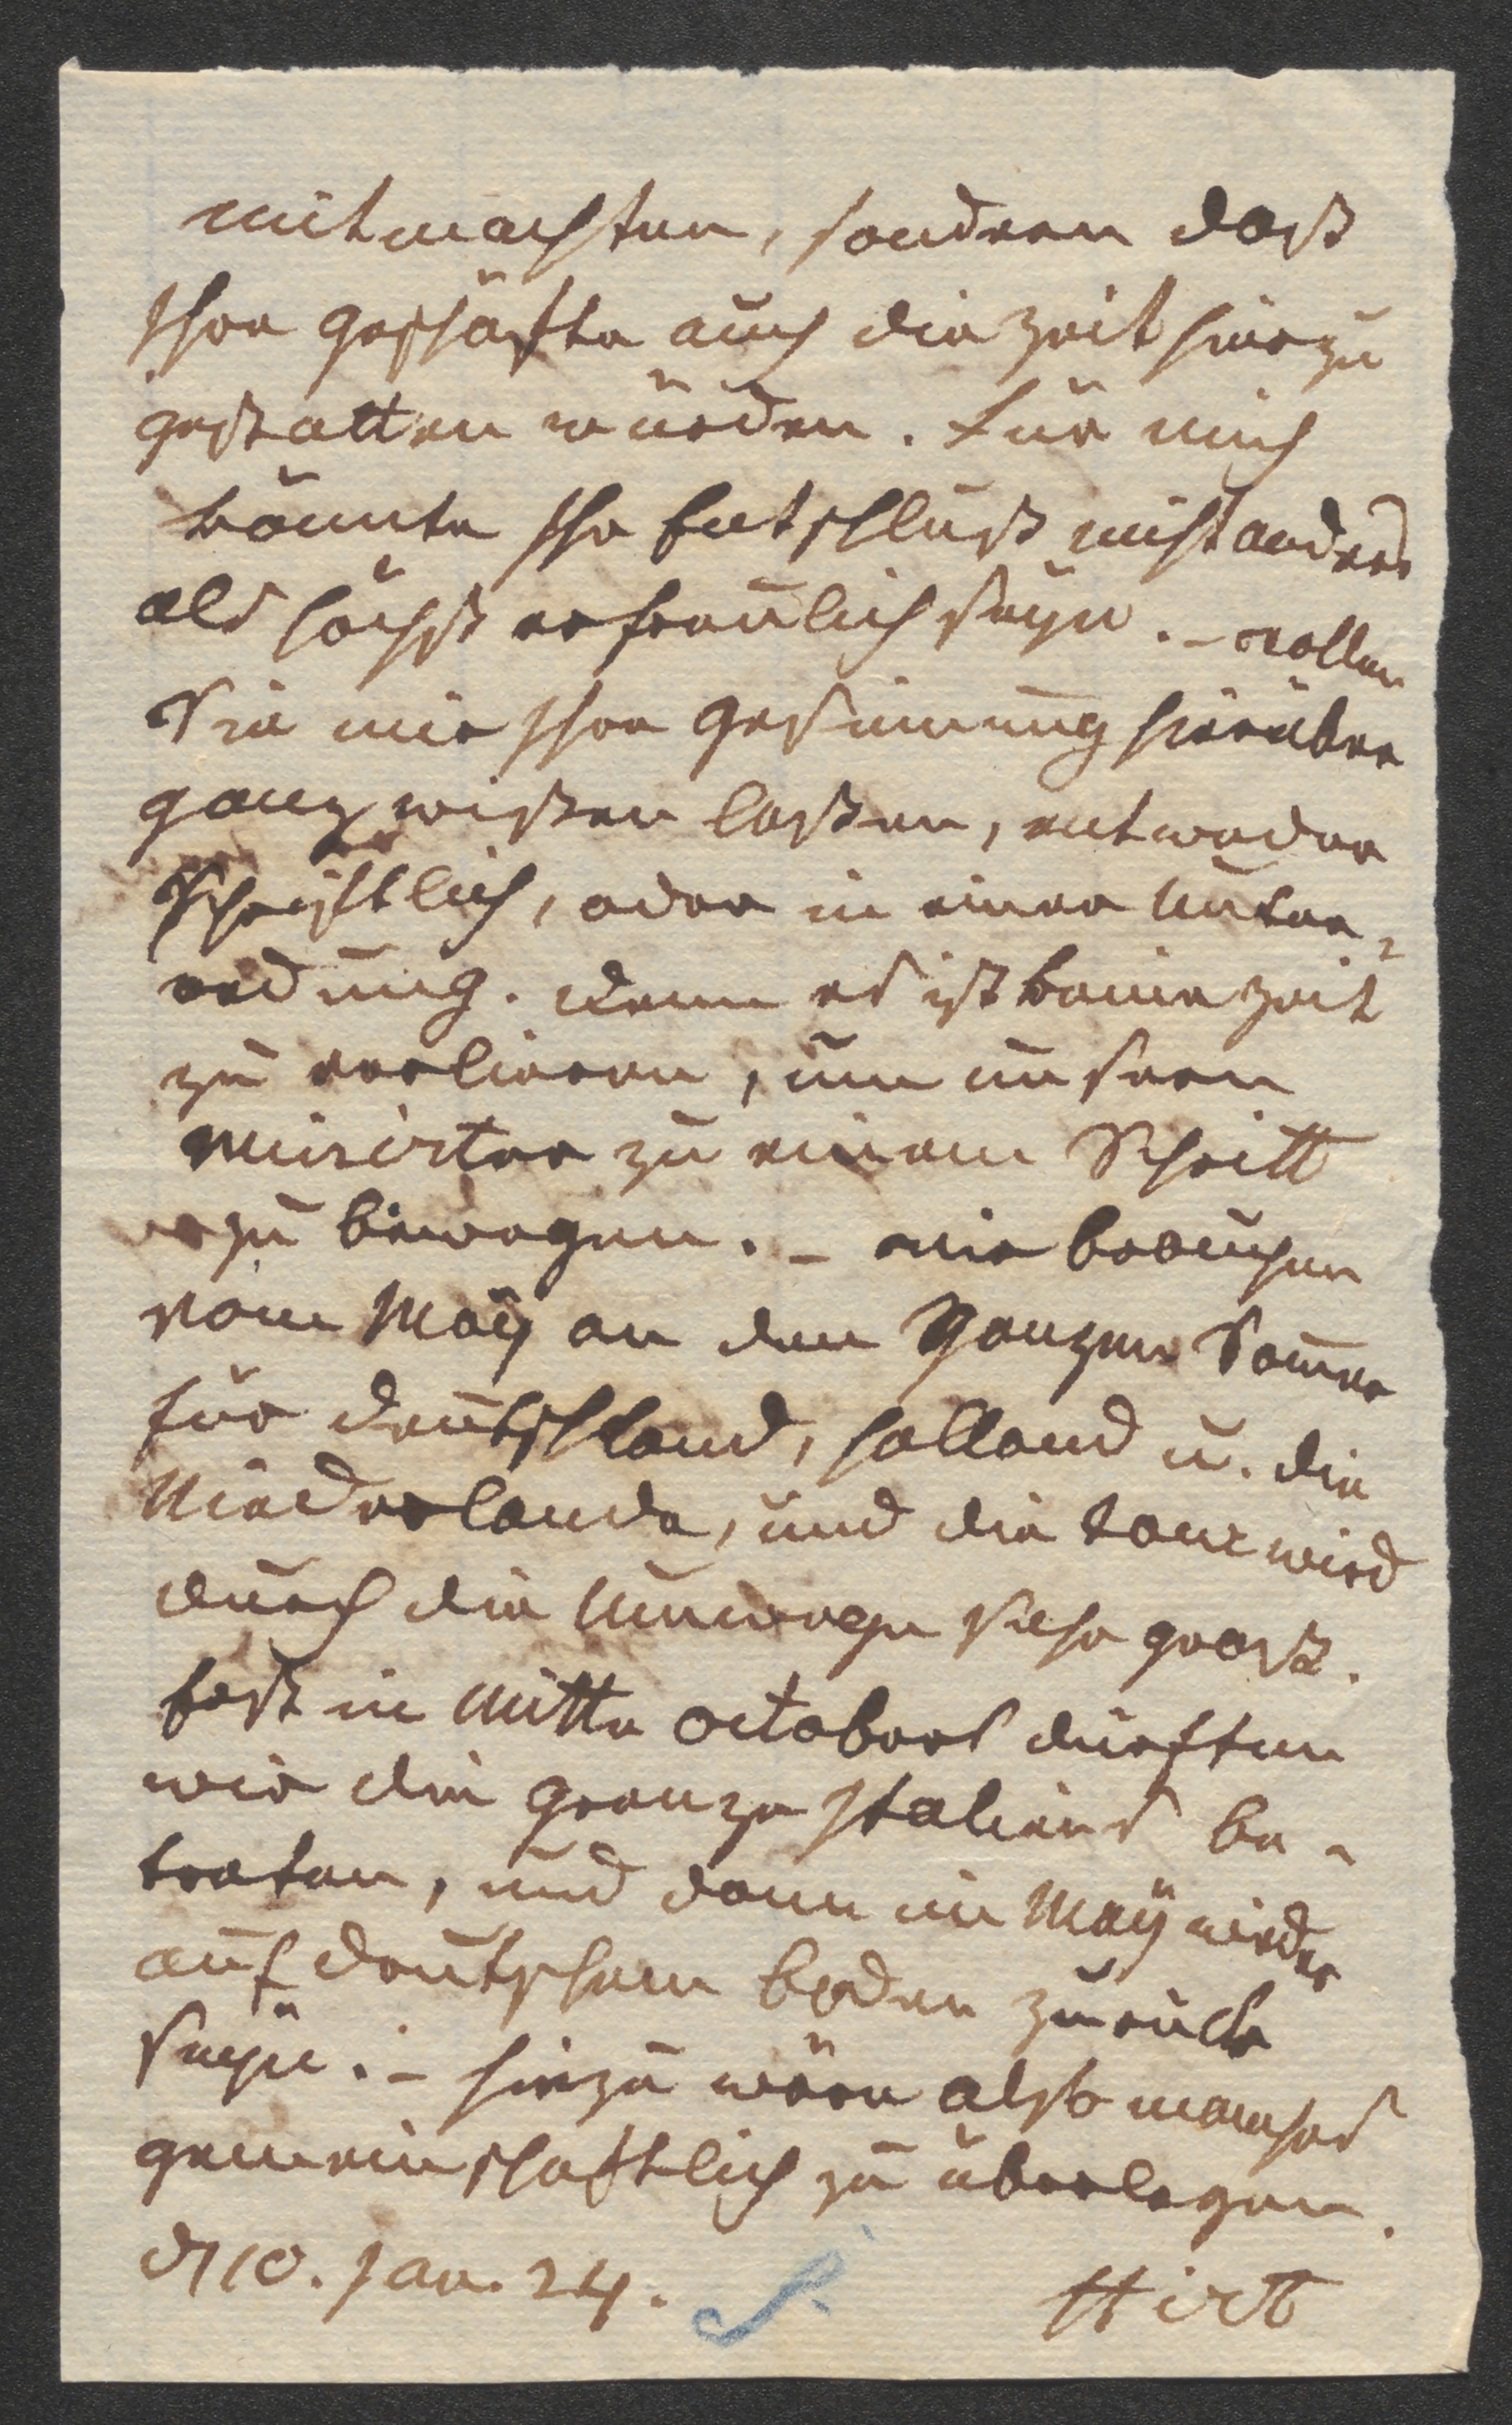 mitmachten, sondern daß
Ihre geschäfte auch die zeit hiezu
gestatten würden. Für mich
könnte Ihr Entschluß nicht anders
als höchst erfreulich seyn. – wollen
Sie mir Ihre Gesinnung hierüber
ganz wißen laßen, entweder
Schriftlich, oder in einer Unter-
redung. denn es ist keine zeit
zu verlieren, um unsern
Minister zu einem Schritt
zu bewegen. – wir brauchen
vom May an den Ganzen Somer
für deutschland, holland u. die
Niederlande, und die tour wird
durch die Umwege sehr groß.
Erst in Mitte octobers dürften
wir die grenze Italiens be-
treten, und dann im May wieder
auf deutschem boden zurück
seyn. – hiezu wäre also manches
gemeinschaftlich zu überlegen.
d 10. Jan. 24. Hirt